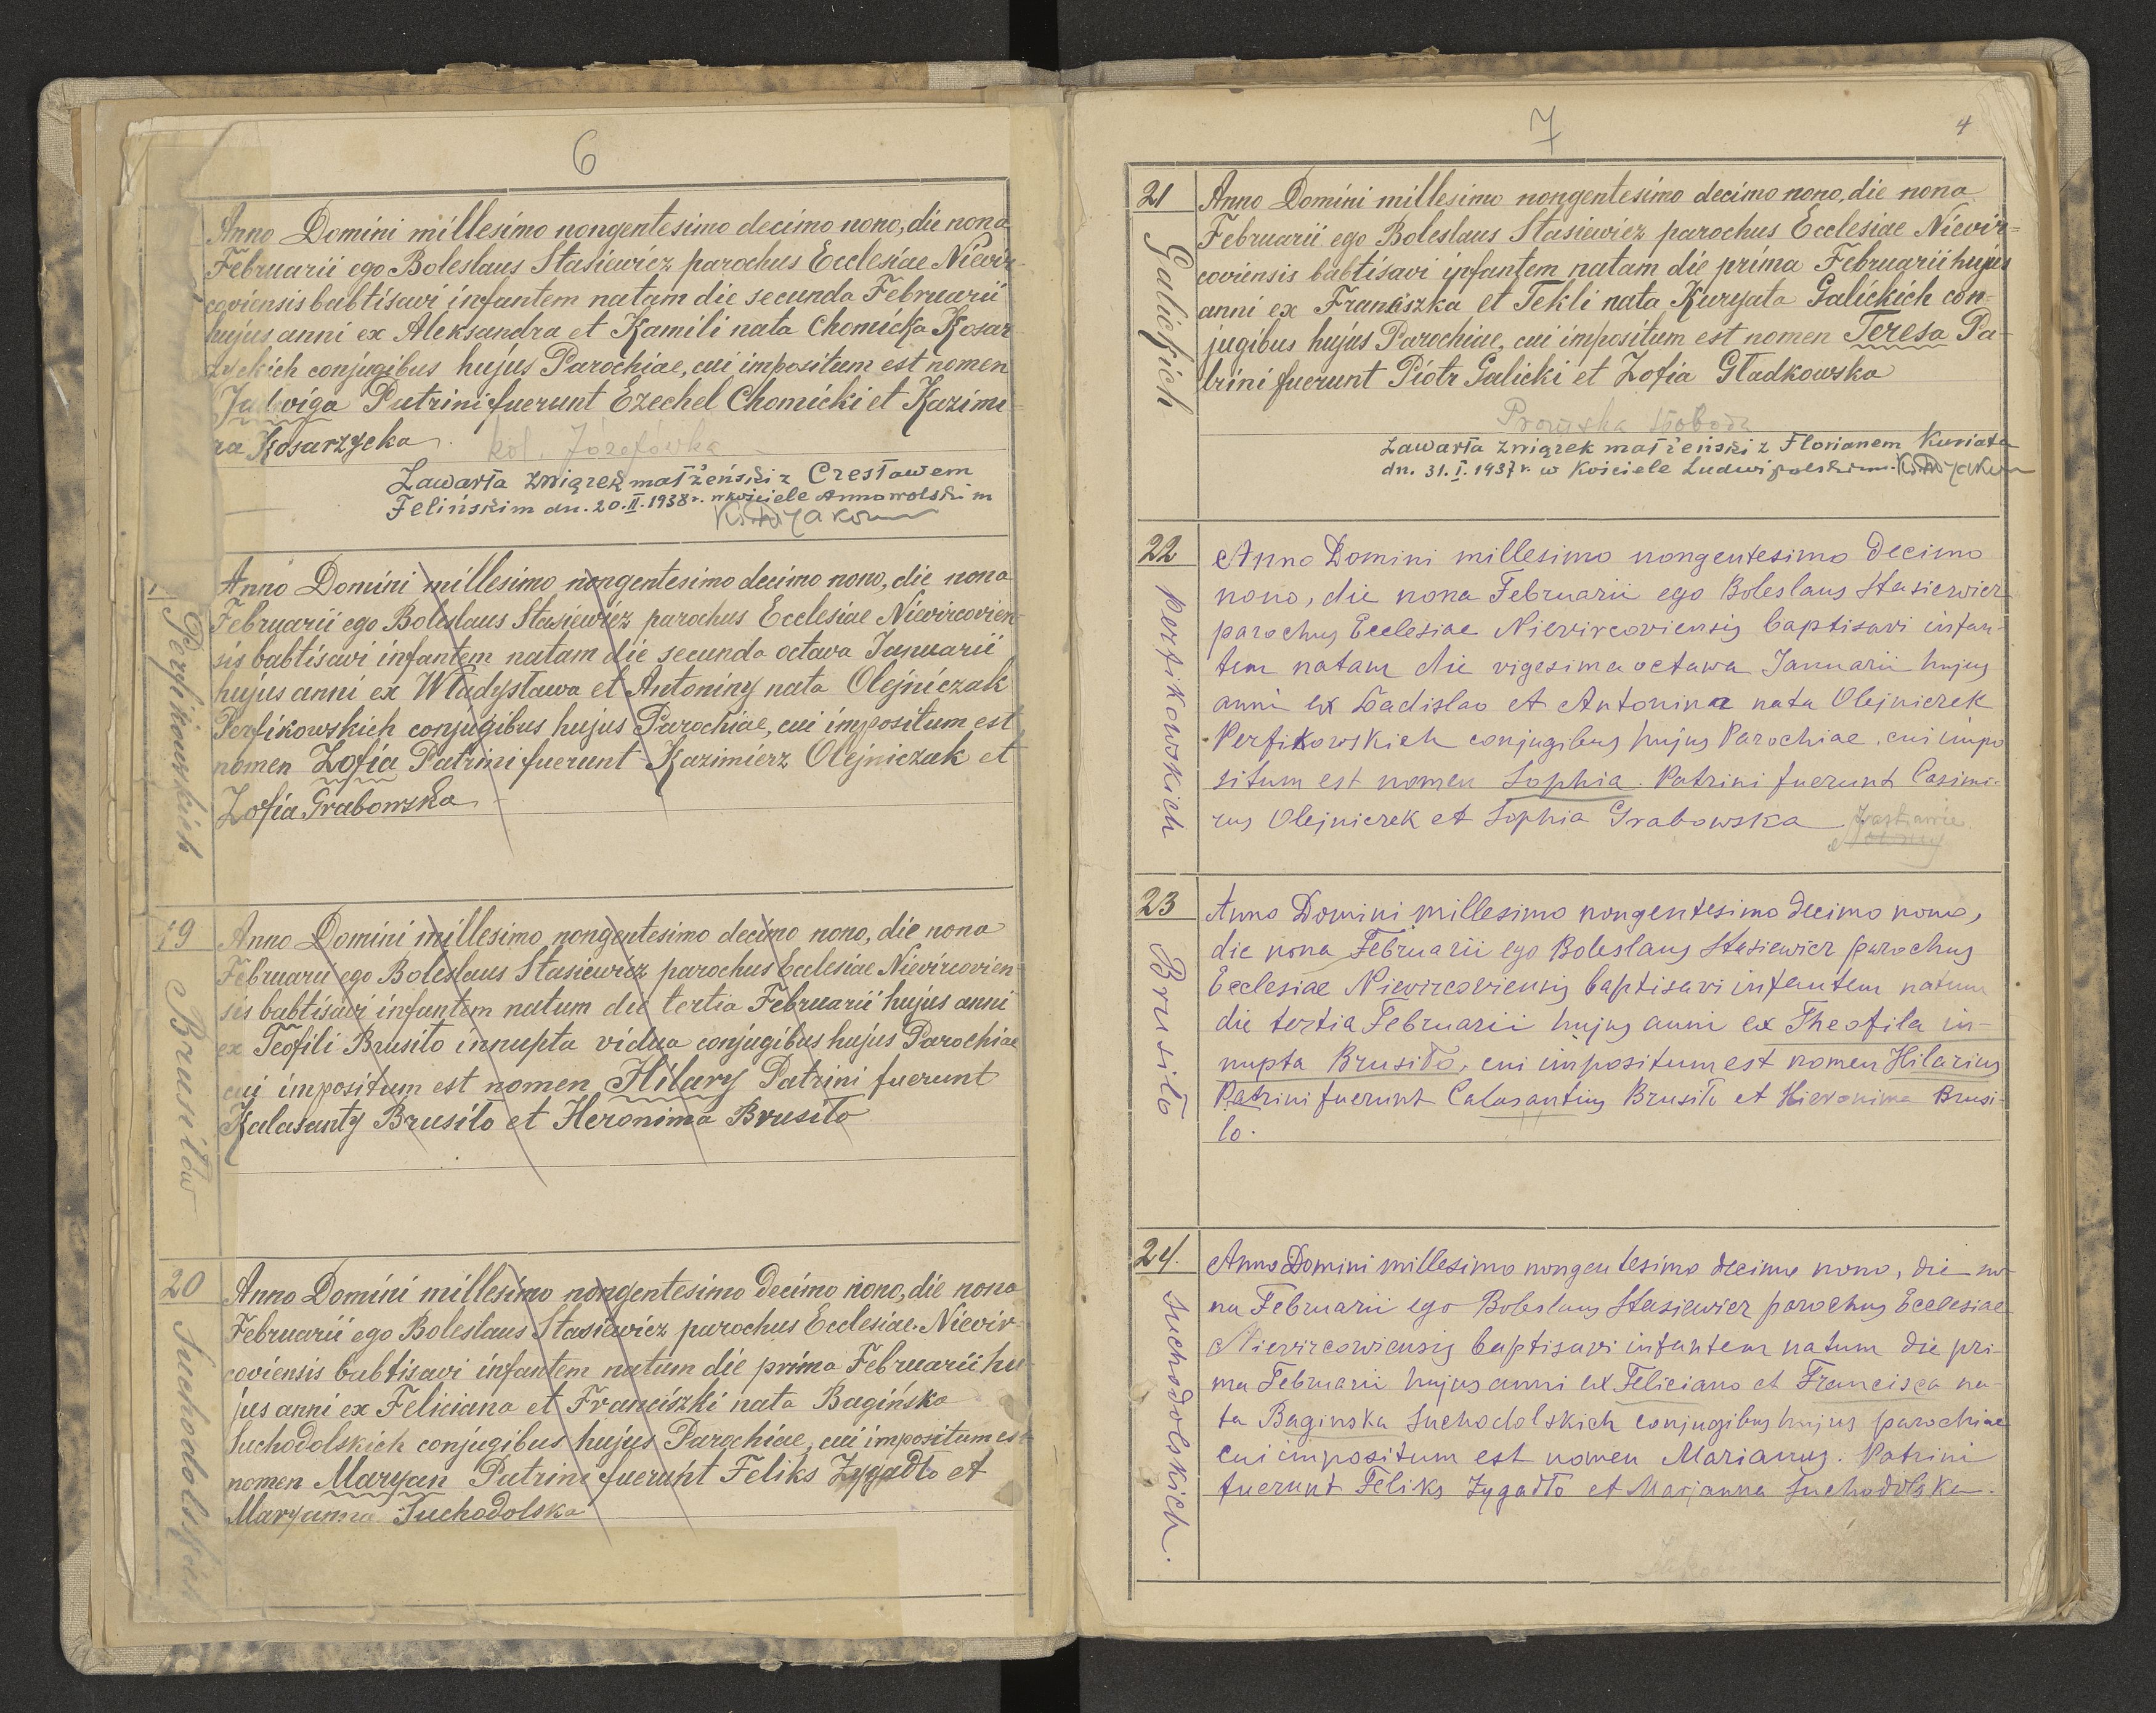 6
Anno Domini millesimo nongentesimo decimo nono, die nona
Februarii ego Boleslaus Stasiewicz parochus Ecclesiae Nievir-
coviensis babtisavi infantem natam die secunda Februarii
hujus anni ex Aleksandra et Kamili nata Chomicka Kosar-
zyckich conjugibus hujus Parochiae, cui impositum est nomen
Jadwiga Putrini fuerunt Ezechel Chomicki et Kazimi-
ra Kosarzycka.
kol. Józefówka
Zawarła związek małżeński z Czesławem
Felińskim dn. 20.II.1938 r. w kościele Annowolskim
Perfikowskich
Anno Domini millesimo nongentesimo decimo nono, die nona
Februarii ego Boleslaus Stasiewicz parochus Ecclesiae Nievircovien-
sis babtisavi infantem natam die secunda octava Januarii
hujus anni ex Władysława et Antoniny nata Olejniczak
Perfikowskich conjugibus hujus Parochiae, cui impositum est
nomen Zofia Patrini fuerunt Kazimierz Olejniczak et
Zofia Grabowska
19
Brusiłow
Anno Domini millesimo nongentesimo decimo nono, die nona
Februarii ego Boleslaus Stasiewicz parochus Ecclesiae Nievircovien-
sis babtisavi infantem natum die tertia Februarii hujus anni
ex Teofili Brusiło innupta vidua conjugibus hujus Parochiae
cui impositum est nomen Hilary Patrini fuerunt
Kalasanty Brusiło et Heronima Brusiło
20
Suchodolskich
Anno Domini millesimo nongentesimo decimo nono, die nona
Februarii ego Boleslaus Stasiewicz parochus Ecclesiae Nievir-
coviensis babtisavi infantem natum die prima Februarii hu-
jus anni ex Feliciana et Franciszki nata Bagińska
Suchodolskich conjugibus hujus Parochiae, cui impositum est
nomen Maryan Putrini fuerunt Feliks Zygadło et
Maryanna Suchodolska
7
4
21
Galickich
Anno Domini millesimo nongentesimo decimo nono, die nona
Februarii ego Boleslaus Stasiewicz parochus Ecclesiae Nievir-
coviensis babtisavi infantem natam die prima Februarii hujus
anni ex Franciszka et Tekli nata Kuryata Galickich con-
jugibus hujus Parochiae, cui impositum est nomen Teresa Pa-
trini fuerunt Piotr Galicki et Zofia Gładkowska
Zawarła związek małżeński z Florianem Kuriata
dn. 31.I.1937 r. w kościele Ludwipolskim.
22
Perfikowskich
Anno Domini millesimo nongentesimo decimo
nono, die nona Februarii ego Boleslaus Stasiewicz
parochus Ecclesiae Nievircoviensis baptisavi infan-
tem natam die vigesima octawa Januarii hujus
anni ex Ladislao et Antonina nata Olejniczek
Perfikowskich conjugibus hujus Parochiae, cui impo
situm est nomen Sophia. Patrini fuerunt Casimi-
rus Olejniczek et Sophia Grabowska
23
Brusiło
Anno Domini millesimo nongentesimo decimo nono,
die nona Februarii ego Boleslaus Stasiewicz parochus
Ecclesiae Nievircoviensis baptisavi infantem natum
die tertia Februarii hujus anni ex Theofila in-
nupta Brusiło, cui impositum est nomen Hilarius
Patrini fuerunt Calasantius Brusiło et Hieronima Brusi-
lo.
24.
Suchodolskich.
Anno Domini millesimo nongentesimo decimo nono, die no-
na Februarii ego Boleslaus Stasiewicz parochus Ecclesiae
Nievircowiensis baptisavi infantem natum die pri-
ma Februarii hujus anni ex Feliciano et Francisca na-
ta Baginska Suchodolskich conjugibus hujus parochiae
cui impositum est nomen Marianus. Patrini
fuerunt Feliks Zygadło et Marjanna Suchodolska.